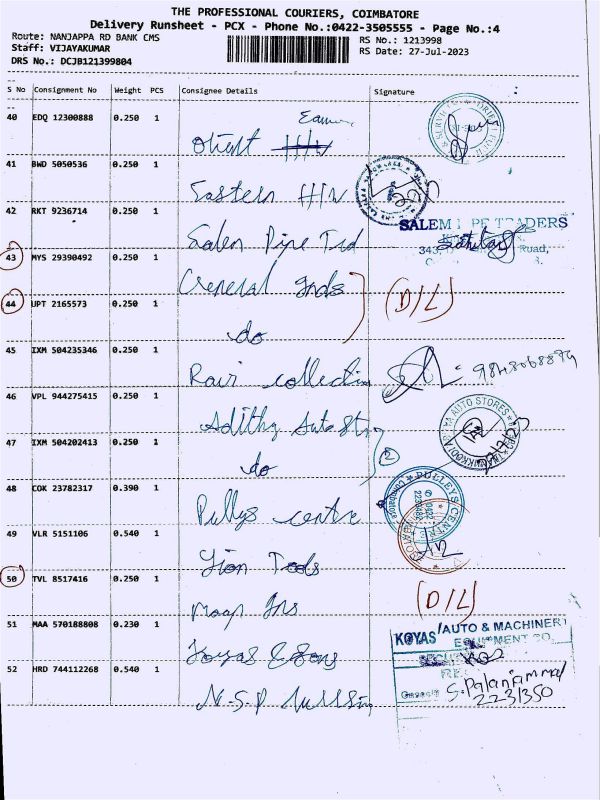 THE PROFESSIONAL COURIERS, COIMBATORE
Delivery Runsheet - PCX - Phone No.:0422-3505555 - Page No.:4
Route: NANJAPPA RD BANK CMS
RS No.: 1213998
Staff: VIJAYAKUMAR
RS Date: 27-Jul-2023
DRS No.: DCJB121399804
S No Consignment No Weight PCS Consignee Details Signature
40 EDQ 12300888 0.250 1
41 BWD 5050536 0.250 1
Eastern
42 RKT 9236714 0.250 1
Salem Pipe Trd
SALEM PIPE TRADERS
Road,
43 MYS 29390492 0.250 1
General
(D/L)
44 UPT 2165573 0.250 1
do
45 IXM 504235346 0.250 1
Ravi collection
46 VPL 944275415 0.250 1
Adithya Auto
AUTO STORES
47 IXM 504202413 0.250 1
do
2
48 COK 23782317 0.390 1
Pullys centre
PULLEYS CENTRE
Coimbatore
49 VLR 5151106 0.540 1
Tools
50 TVL 8517416 0.250 1
(D/L)
51 MAA 570188808 0.230 1
Koyas & Sons
KOYAS AUTO & MACHINERY
EQUIPMENT CO.
52 HRD 744112268 0.540 1
N.S.P
S. Palaniammal
2231350